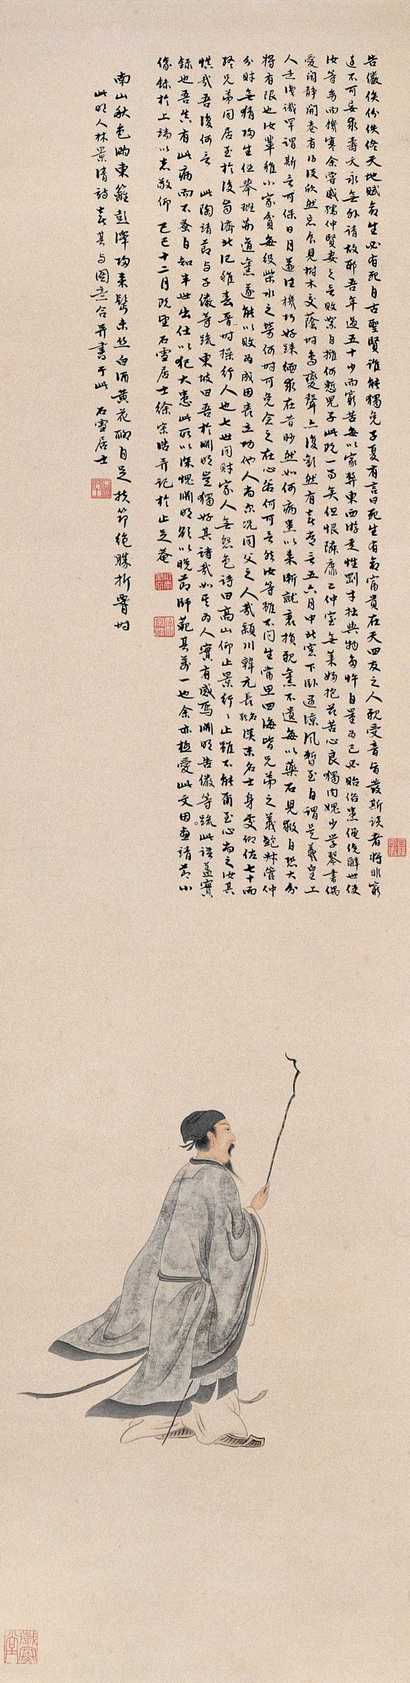 告儼俟份佚佟天地賦命生必有死自古聖賢誰能獨免子夏有言曰死生有命富貴在天四友之人親受音旨發斯談者將非窮
達不可妄求壽夭永無外請故耶吾年過五十少而窮苦每以家弊東西游走性剛才拙與物多忤自量為己必貽俗患僶俛辭世使
汝等幼而饑寒余嘗感孺仲賢妻之言敗絮自擁何慙兒子此既一事矣但恨隣靡二仲室無萊婦抱茲苦心良獨內愧少學琴書偶
愛閑靜開卷有得便欣然忘食見樹木交蔭時鳥變聲亦復歡然有喜嘗言五六月中北窗下臥遇涼風暫至自謂是羲皇上
人意淺識罕謂斯言可保日月遂往機巧好疎緬求在昔眇然如何病患以來漸就衰損親舊不遺每以藥石見救自恐大分
將有限也汝輩稚小家貧每役柴水之勞何時可免念之在心若何可言然汝等雖不同生當思四海皆兄弟之義鮑叔管仲
分財無猜歸生伍舉班荊道舊遂能以敗為成因喪立功他人尚爾況同父之人哉潁川韓元長漢末名士身處卿佐七十而
終兄弟同居至於沒齒濟北氾稚春晉時操行人也七世同財家人無怨色詩曰高山仰止景行行止雖不能爾至心尚之汝其
慎哉吾復何言 此陶靖節與子儼等疏東坡曰吾於淵明豈獨好其詩哉如其為人實有感焉淵明告儼等疏此語蓋實
錄也吾真有此病而不蚤自知半世出仕以犯大患此所以深愧淵明欲以晚節師範其萬一也余亦極愛此文因畫靖節小
像錄於上端以志敬仰 己巳十二月既望石雪居士徐宗浩并記於止足菴
南山秋色滿東籬彭澤歸來鬢未絲白酒黃花聊自足扶筇絕勝折腰時
此明人林景清詩喜其與圖意合并書于此 石雪居士